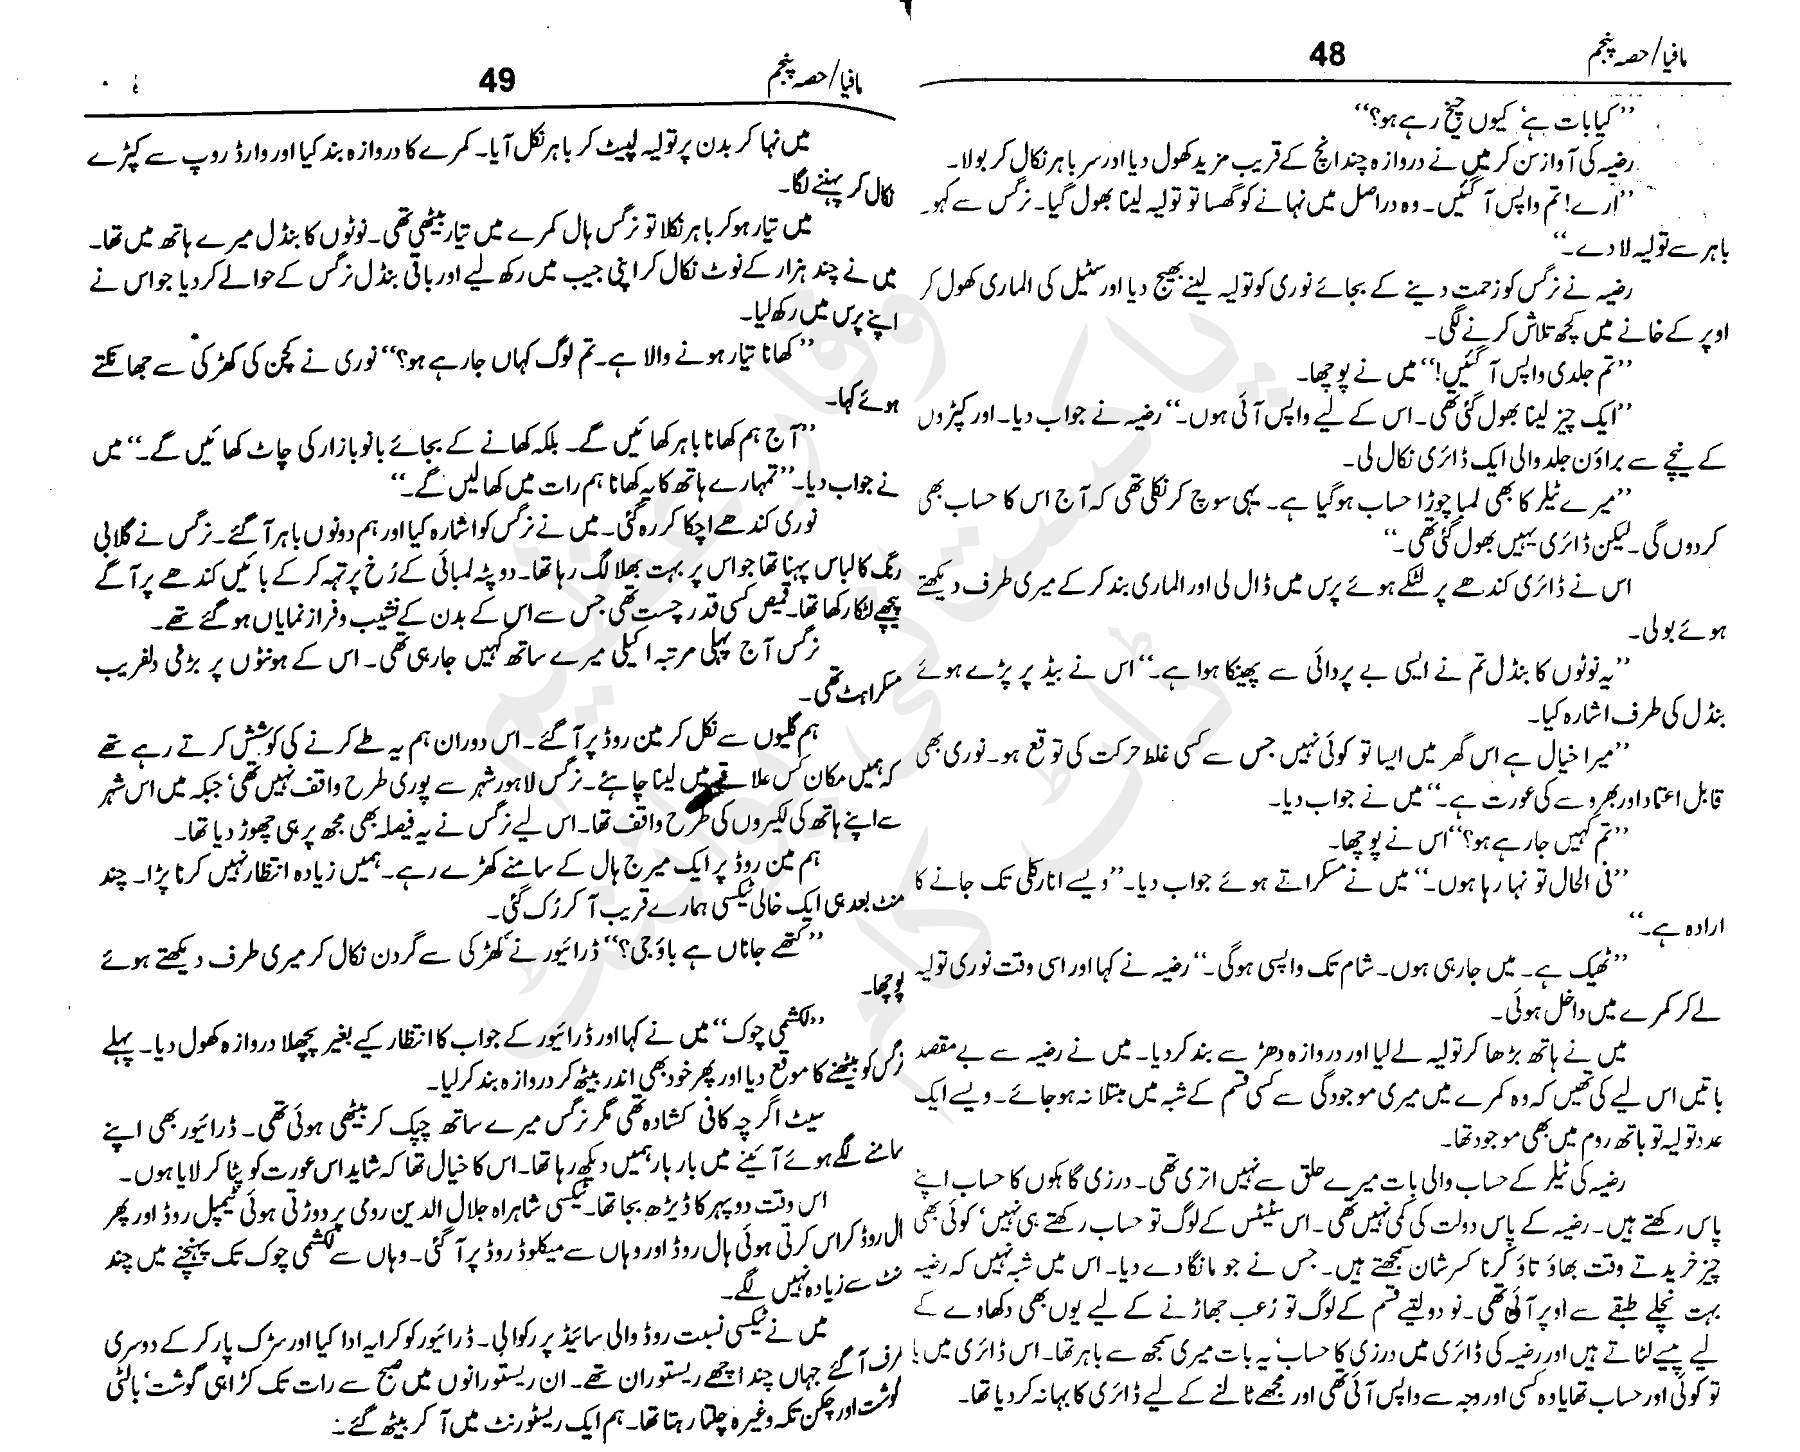 مافیا/حصہ پنجم
48
’’کیا بات ہے‘ کیوں چیخ رہے ہو؟‘‘
رضیہ کی آواز سن کر میں نے دروازہ چند انچ کے قریب مزید کھول دیا اور سر باہر نکال کر بولا۔
’’ارے! تم واپس آ گئیں۔ وہ دراصل میں نہانے کو گھسا تو تولیہ لینا بھول گیا۔ نرگس سے کہو۔
باہر سے تولیہ لا دے۔‘‘
رضیہ نے نرگس کو زحمت دینے کے بجائے نوری کو تولیہ لینے بھیج دیا اور سٹیل کی الماری کھول کر
اوپر کے خانے میں کچھ تلاش کرنے لگی۔
’’تم جلدی واپس آ گئیں!‘‘ میں نے پوچھا۔
’’ایک چیز لینا بھول گئی تھی۔ اس کے لیے واپس آئی ہوں۔‘‘ رضیہ نے جواب دیا۔ اور کپڑوں
کے نیچے سے براؤن جلد والی ایک ڈائری نکال لی۔
’’میرے ٹیلر کا بھی لمبا چوڑا حساب ہو گیا ہے۔ یہی سوچ کر نکلی تھی کہ آج اس کا حساب بھی
کر دوں گی۔ لیکن ڈائری یہیں بھول گئی تھی۔‘‘
اس نے ڈائری کندھے پر لٹکے ہوئے پرس میں ڈال لی اور الماری بند کر کے میری طرف دیکھتے
ہوئے بولی۔
’’یہ نوٹوں کا بنڈل تم نے ایسی بے پروائی سے پھینکا ہوا ہے۔‘‘ اس نے بیڈ پر پڑے ہوئے
بنڈل کی طرف اشارہ کیا۔
’’میرا خیال ہے اس گھر میں ایسا تو کوئی نہیں جس سے کسی غلط حرکت کی توقع ہو۔ نوری بھی
قابل اعتماد اور بھروسے کی عورت ہے۔‘‘ میں نے جواب دیا۔
’’تم کہیں جا رہے ہو؟‘‘ اس نے پوچھا۔
’’فی الحال تو نہا رہا ہوں۔‘‘ میں نے مسکراتے ہوئے جواب دیا۔ ’’ویسے انارکلی تک جانے کا
ارادہ ہے۔‘‘
’’ٹھیک ہے۔ میں جا رہی ہوں۔ شام تک واپسی ہو گی۔‘‘ رضیہ نے کہا اور اسی وقت نوری تولیہ
لے کر کمرے میں داخل ہوئی۔
میں نے ہاتھ بڑھا کر تولیہ لے لیا اور دروازہ دھڑ سے بند کر دیا۔ میں نے رضیہ سے بے مقصد
باتیں اس لیے کی تھیں کہ وہ کمرے میں میری موجودگی سے کسی قسم کے شبہ میں مبتلا نہ ہو جائے۔ ویسے ایک
عدد تولیہ تو باتھ روم میں بھی موجود تھا۔
رضیہ کی ٹیلر کے حساب والی بات میرے حلق سے نہیں اتری تھی۔ درزی گاہکوں کا حساب اپنے
پاس رکھتے ہیں۔ رضیہ کے پاس دولت کی کمی نہیں تھی۔ اس سٹیٹس کے لوگ تو حساب رکھتے ہی نہیں‘ کوئی بھی
چیز خریدتے وقت بھاؤ تاؤ کرنا کسر شان سمجھتے ہیں۔ جس نے جو مانگا دے دیا۔ اس میں شبہ نہیں کہ رضیہ
بہت نچلے طبقے سے اوپر آئی تھی۔ نو دولتیے قسم کے لوگ تو رُعب جھاڑنے کے لیے یوں بھی دکھاوے کے
لیے پیسے لٹاتے ہیں اور رضیہ کی ڈائری میں درزی کا حساب‘ یہ بات میری سمجھ سے باہر تھا۔ اس ڈائری میں یا
تو کوئی اور حساب تھا یا وہ کسی اور وجہ سے واپس آئی تھی اور مجھے ٹالنے کے لیے ڈائری کا بہانہ کر دیا تھا۔
مافیا/حصہ پنجم
49
میں نہا کر بدن پر تولیہ لپیٹ کر باہر نکل آیا۔ کمرے کا دروازہ بند کیا اور وارڈ روپ سے کپڑے
نکال کر پہننے لگا۔
میں تیار ہو کر باہر نکلا تو نرگس ہال کمرے میں تیار بیٹھی تھی۔ نوٹوں کا بنڈل میرے ہاتھ میں تھا۔
میں نے چند ہزار کے نوٹ نکال کر اپنی جیب میں رکھ لیے اور باقی بنڈل نرگس کے حوالے کر دیا جو اس نے
اپنے پرس میں رکھ لیا۔
’’کھانا تیار ہونے والا ہے۔ تم لوگ کہاں جا رہے ہو؟‘‘ نوری نے کچن کی کھڑکی سے جھانکتے
ہوئے کہا۔
’’آج ہم کھانا باہر کھائیں گے۔ بلکہ کھانے کے بجائے بانو بازار کی چاٹ کھائیں گے۔‘‘ میں
نے جواب دیا۔ ’’تمہارے ہاتھ کا یہ کھانا ہم رات میں کھا لیں گے۔‘‘
نوری کندھے اچکا کر رہ گئی۔ میں نے نرگس کو اشارہ کیا اور ہم دونوں باہر آ گئے۔ نرگس نے گلابی
رنگ کا لباس پہنا تھا جو اس پر بہت بھلا لگ رہا تھا۔ دوپٹہ لمبائی کے رُخ پر تہہ کر کے بائیں کندھے پر آگے
پیچھے لٹکا رکھا تھا۔ قمیض کسی قدر چست تھی جس سے اس کے بدن کے نشیب و فراز نمایاں ہو گئے تھے۔
نرگس آج پہلی مرتبہ اکیلی میرے ساتھ کہیں جا رہی تھی۔ اس کے ہونٹوں پر بڑی دلفریب
مسکراہٹ تھی۔
ہم گلیوں سے نکل کر مین روڈ پر آ گئے۔ اس دوران ہم یہ طے کرنے کی کوشش کرتے رہے تھے
کہ ہمیں مکان کس علاقے میں لینا چاہئے۔ نرگس لاہور شہر سے پوری طرح واقف نہیں تھی‘ جبکہ میں اس شہر
سے اپنے ہاتھ کی لکیروں کی طرح واقف تھا۔ اس لیے نرگس نے یہ فیصلہ بھی مجھ پر ہی چھوڑ دیا تھا۔
ہم مین روڈ پر ایک میرج ہال کے سامنے کھڑے رہے۔ ہمیں زیادہ انتظار نہیں کرنا پڑا۔ چند
منٹ بعد ہی ایک خالی ٹیکسی ہمارے قریب آ کر رُک گئی۔
’’کتھے جاناں ہے باؤ جی؟‘‘ ڈرائیور نے کھڑکی سے گردن نکال کر میری طرف دیکھتے ہوئے
پوچھا۔
’’لکشمی چوک‘‘ میں نے کہا اور ڈرائیور کے جواب کا انتظار کیے بغیر پچھلا دروازہ کھول دیا۔ پہلے
نرگس کو بیٹھنے کا موقع دیا اور پھر خود بھی اندر بیٹھ کر دروازہ بند کر لیا۔
سیٹ اگرچہ کافی کشادہ تھی مگر نرگس میرے ساتھ چپک کر بیٹھی ہوئی تھی۔ ڈرائیور بھی اپنے
سامنے لگے ہوئے آئینے میں بار بار ہمیں دیکھ رہا تھا۔ اس کا خیال تھا کہ شاید اس عورت کو پٹا کر لایا ہوں۔
اس وقت دوپہر کا ڈیڑھ بجا تھا۔ ٹیکسی شاہراہ جلال الدین رومی پر دوڑتی ہوئی ٹیمپل روڈ اور پھر
مال روڈ کراس کرتی ہوئی ہال روڈ اور وہاں سے میکلوڈ روڈ پر آ گئی۔ وہاں سے لکشمی چوک تک پہنچنے میں چند
منٹ سے زیادہ نہیں لگے۔
میں نے ٹیکسی نسبت روڈ والی سائیڈ پر رکوا لی۔ ڈرائیور کو کرایہ ادا کیا اور سڑک پار کر کے دوسری
طرف آ گئے جہاں چند اچھے ریستوران تھے۔ ان ریستورانوں میں صبح سے رات تک کڑاہی گوشت‘ بالٹی
گوشت اور چکن تکہ وغیرہ چلتا رہتا تھا۔ ہم ایک ریسٹورنٹ میں آ کر بیٹھ گئے۔